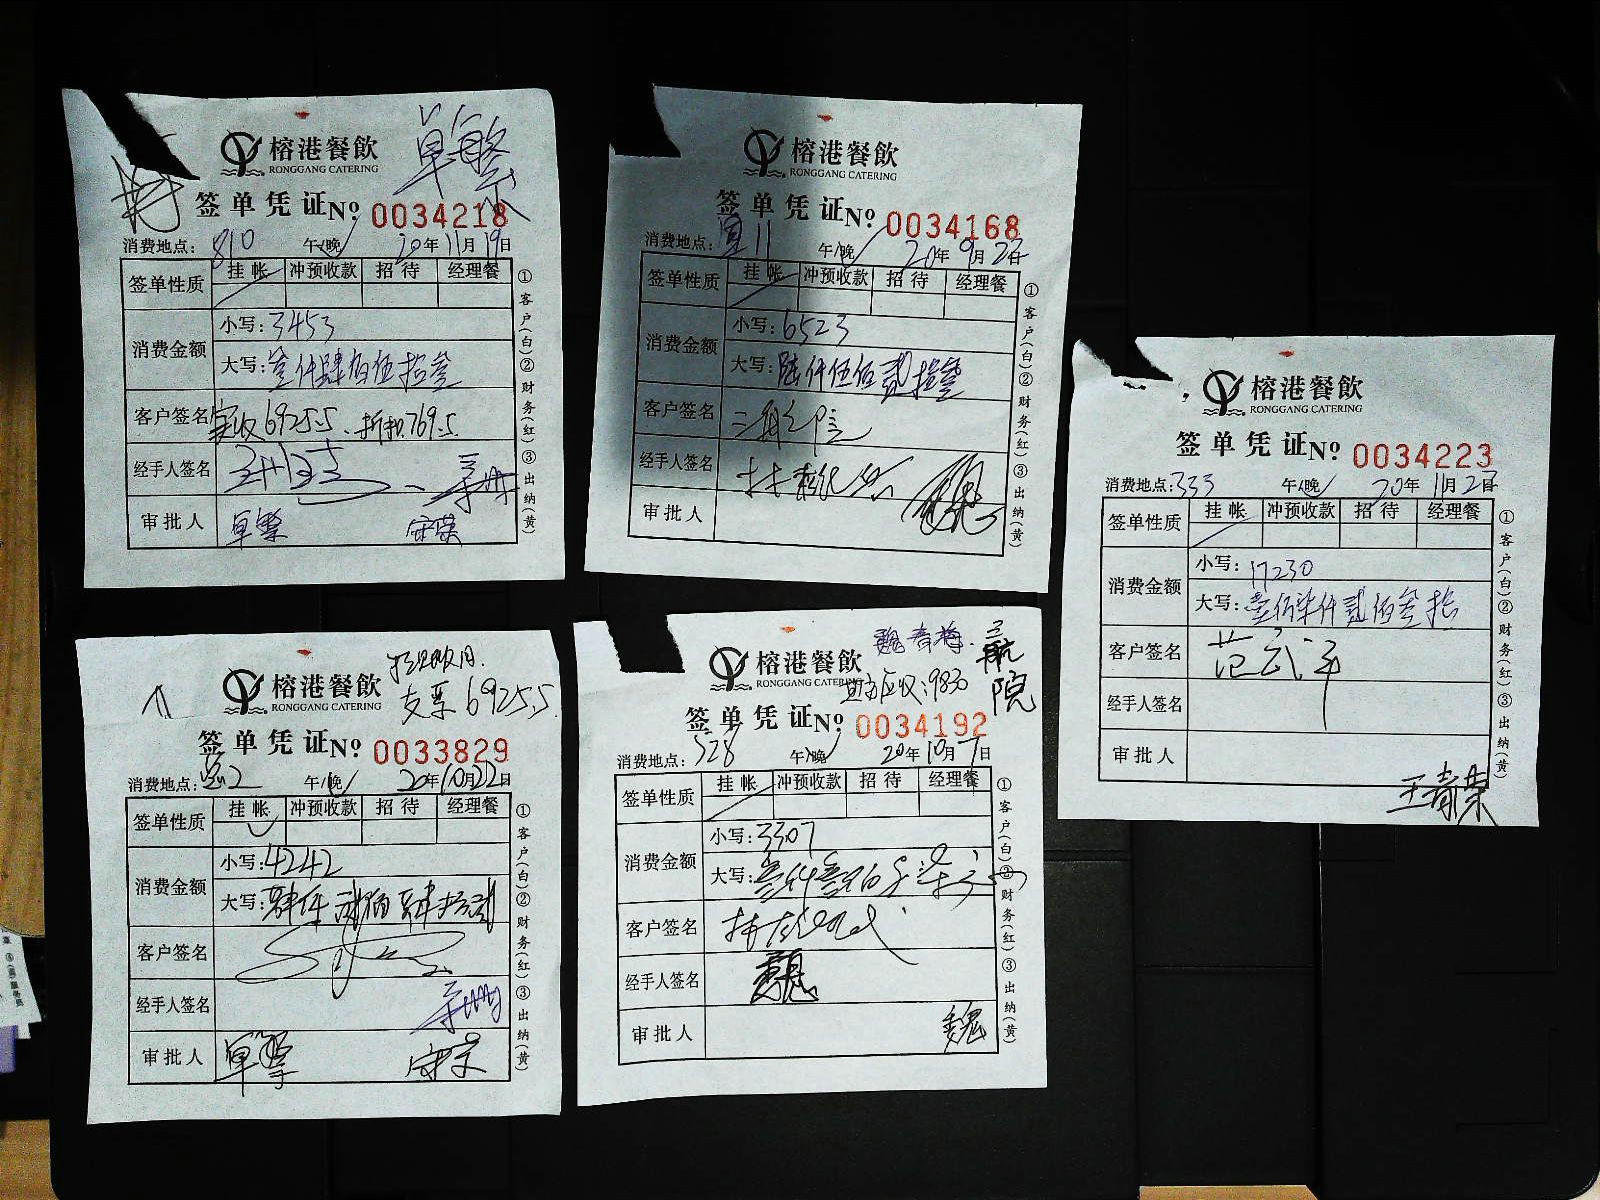 单繁
榕港餐飲
RONGGANG CATERING
签单凭证 № 0034218
消费地点: 810 午/晚 20年11月19日
签单性质 挂帐 冲预收款 招待 经理餐
消费金额 小写: 3453
大写: 叁仟肆佰伍拾叁
客户签名 实收6925.5、折扣769.5
经手人签名
审批人 单繁 守荣
①客户(白)②财务(红)③出纳(黄)
榕港餐飲
RONGGANG CATERING
签单凭证 № 0034168
消费地点: 宜11 午/晚 20年9月23日
签单性质 挂帐 冲预收款 招待 经理餐
消费金额 小写: 6523
大写: 陆仟伍佰贰拾叁
客户签名 三航院
经手人签名
审批人
①客户(白)②财务(红)③出纳(黄)
榕港餐飲
RONGGANG CATERING
签单凭证 № 0034223
消费地点: 333 午/晚 20年11月23日
签单性质 挂帐 冲预收款 招待 经理餐
消费金额 小写: 17230
大写: 壹佰柒仟贰佰叁拾
客户签名 范武平
经手人签名
审批人
王青荣
①客户(白)②财务(红)③出纳(黄)
支票6925.5
榕港餐飲
RONGGANG CATERING
签单凭证 № 0033829
消费地点: 午/晚 20年10月22日
签单性质 挂帐 冲预收款 招待 经理餐
消费金额 小写: 4242
大写: 肆仟贰佰肆拾贰
客户签名
经手人签名
审批人 单繁
①客户(白)②财务(红)③出纳(黄)
魏春梅 三航院
应收:9830
榕港餐飲
RONGGANG CATERING
签单凭证 № 0034192
消费地点: 528 午/晚 20年10月7日
签单性质 挂帐 冲预收款 招待 经理餐
消费金额 小写: 3307
大写: 叁仟叁佰零柒
客户签名
经手人签名 魏
审批人 魏
①客户(白)②财务(红)③出纳(黄)